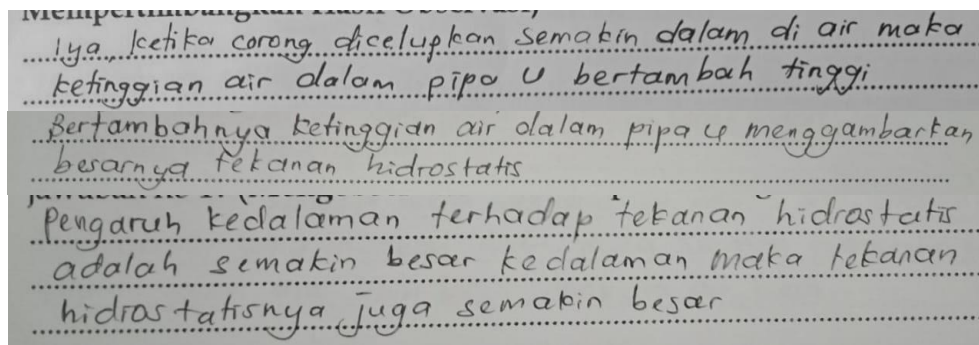 Iya, ketika corong dicelupkan semakin dalam di air maka
ketinggian air dalam pipa U bertambah tinggi
Bertambahnya ketinggian air dalam pipa U menggambarkan
besarnya tekanan hidrostatis
Pengaruh kedalaman terhadap tekanan hidrostatis
adalah semakin besar kedalaman maka tekanan
hidrostatisnya juga semakin besar